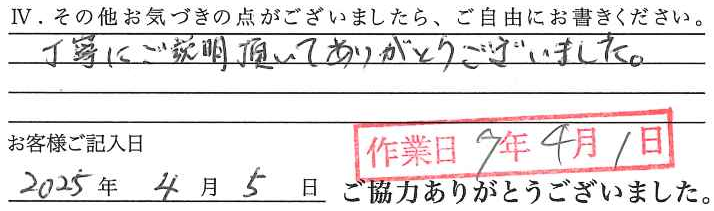 Ⅳ．その他お気づきの点がございましたら、ご自由にお書きください。
丁寧にご説明頂いてありがとうございました。
お客様ご記入日
作業日 7年4月1日
2025年 4月5日
ご協力ありがとうございました。